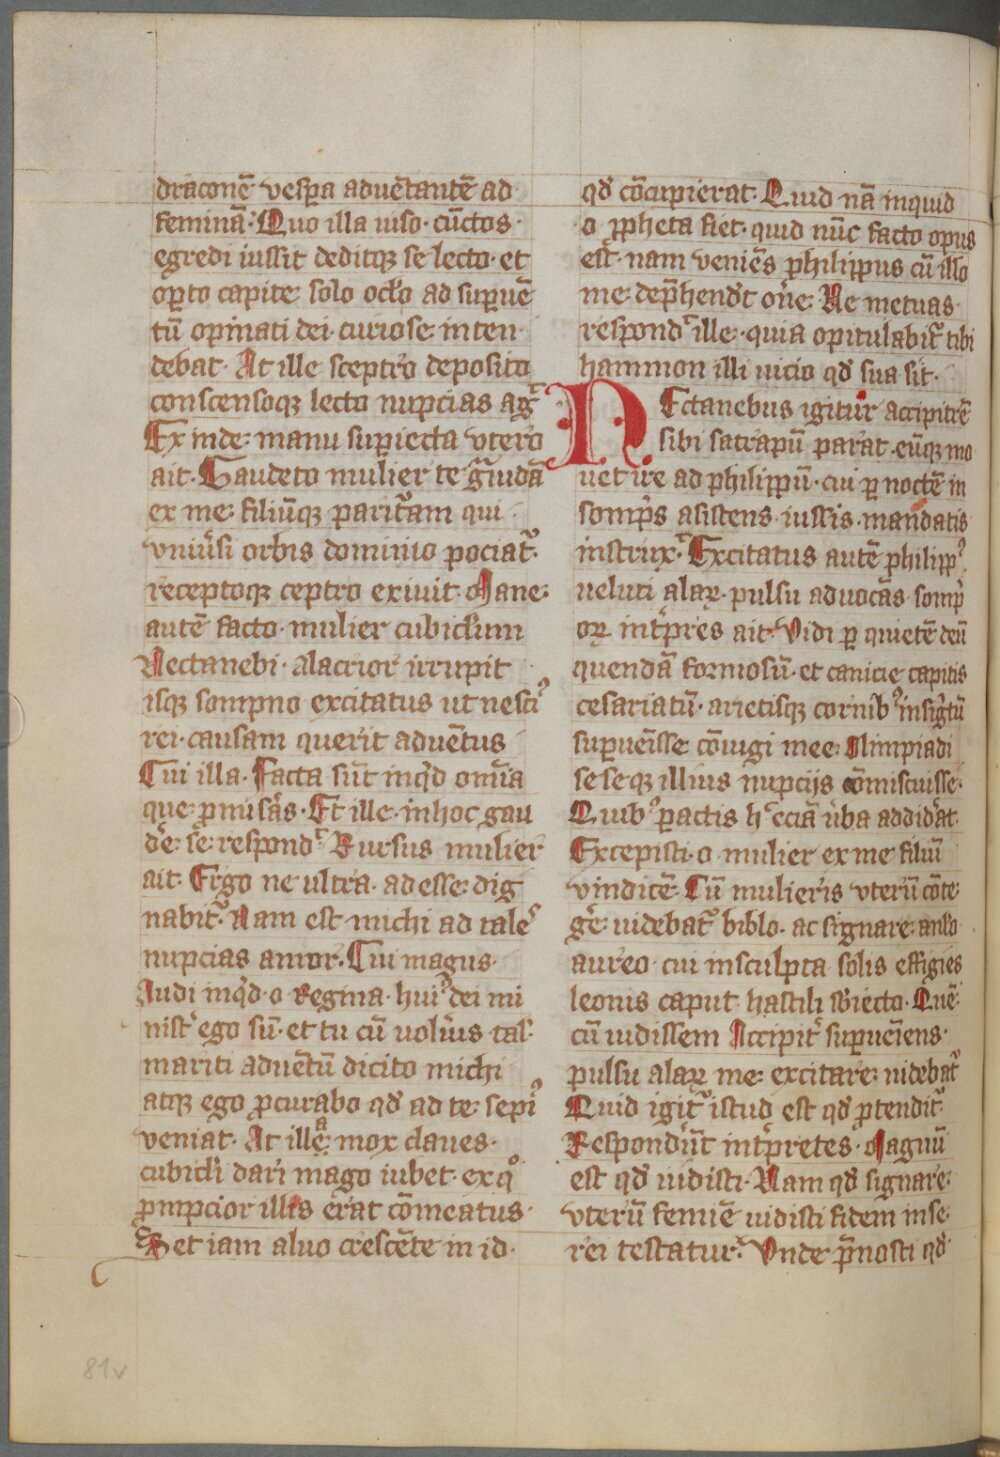 draconē vesp̲a aduētantē ad
feminā· Quo illa uiso· cūctos·
egredi iussit deditqꝫ se lecto· et
op̲to capite solo oclo ad sup̲uē
tū opinati dei· curiose inten·
debat· At ille sceptro deposito
conscensoqꝫ lecto nupcias agͭ
Ex inde manu sup̲iecta vtero
ait· Gaudeto mulier te gͣuidā
ex me· filiūqꝫ paritͣam qui·
vniũsi orbis dominio pociatͬ·
receptoqꝫ ceptro exiuit· Mane
autē facto· mulier cubiclum
Nectanebi· alacrior irrupit
isqꝫ sompno excitatus ut nesciꝰ
rei· causam querit aduētus
Cui illa· Facta sūt inqͥd om̄ia
que ꝓmisas· Et ille· in hoc gau
dēͤ sēͤ respondͭ Rursus mulier
ait· Ergo ne ultra· ad esse dig
nabitͬ· Nam est michi ad taleˢ
nupcias amor· Cui magus·
Audi inqͥd o Regina· huiꝰ dei mi
nistͬ ego sū· et tu cū uolũis· tal·
mariti aduētū dicito michi
atqꝫ ego ꝓcurabo qđ ad te sepiꝰ
veniat· At illeͣ mox claues·
cubicli dari mago iubet· ex qͦ
ꝓmpcior illis erat cōmeatus·
Set iam aluo crescēte in id·
qđ cōcupierat· Quid nā inquid
o ꝓpheta fiet· quid nūc facto opus
est· nam veniēs philippus cū illo
me dep̄hendͭ on̄e Ne metuas·
respondͭ ille· quia opitulabitͬ tibi
hammon illi uicio qđ sua sit·
NEctanebus igitur accipitrē
sibi satrapū parat· eūqꝫ mo
uet ire ad philippū· cui p̲ noctē in
somp̄s asistens iussis· mandatis
instruxͭ· Excitatus autē philippꝰ
ueluti alaꝝ· pulsu aduocās somp̄
oꝝ intͥpres ait· Vidi p̲ quietē deū
quendā formosū· et canicie capitis
cesariatū· arietisqꝫ cornibꝰ insigͥtū
sup̲uēisse cōiugi mee Olimpiadi
seseqꝫ illius nupcijs cōmiscuisse·
Quibꝰ p̲actis hͨ eciā ũba addidͥat
Excepisti· o mulier ex me filiū
vindicē· Cū mulieris vterū cōte
gēͤ uidebatͬ biblo· ac signare anlo
aureo cui insculpta solis effigies
leonis caput hastili sb̄iecto· Quē
cū uidissem Accipitͬ sup̲uēiens·
pulsu alaꝝ me excitare· uidebatͬ
Quid igitͬ istud est qđ p̲tenditͬ·
Respondeͬūt intͥpretes· Magnū
est qđ uidisti· Nam qđ signare
vterū femiē uidisti fidem in se
rei testatur· Vnde p̄nosti qđ
81v